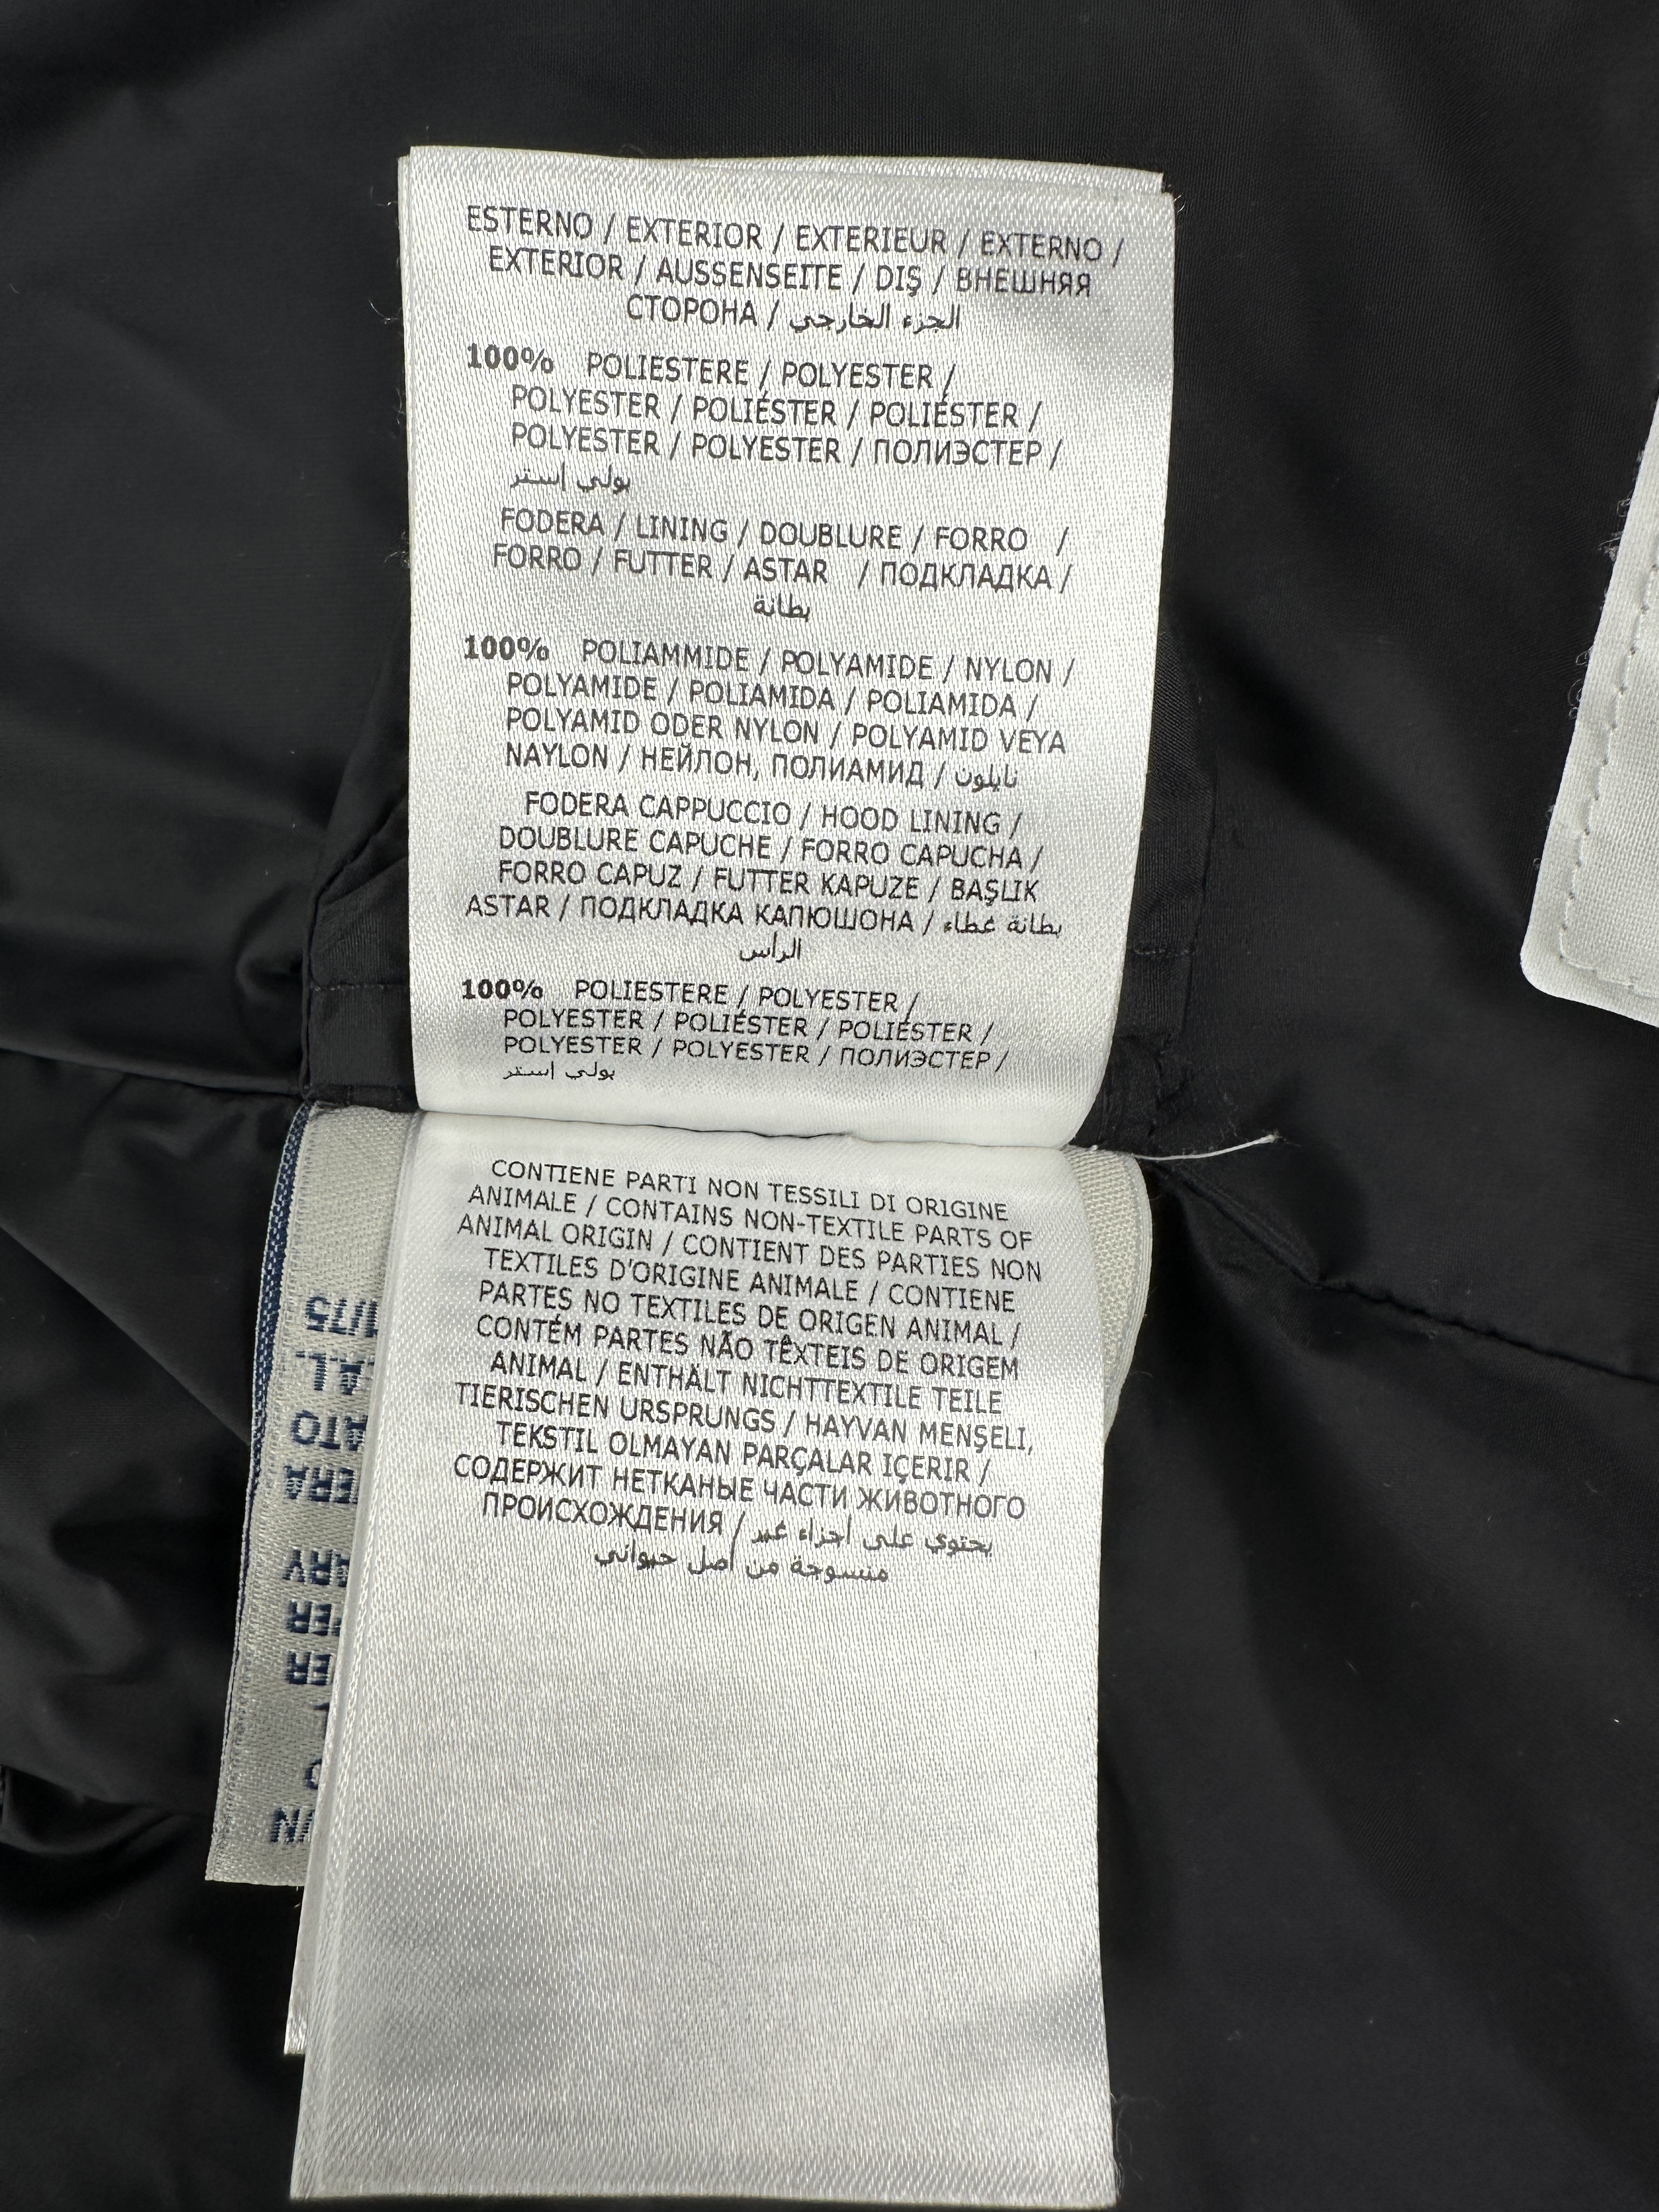 ESTERNO / EXTERIOR / EXTERIEUR / EXTERNO /
EXTERIOR / AUSSENSEITE / DIŞ / ВНЕШНЯЯ
СТОРОНА / الجزء الخارجي
100% POLIESTERE / POLYESTER /
POLYESTER / POLIÉSTER / POLIÉSTER /
POLYESTER / POLYESTER / ПОЛИЭСТЕР /
بولي إستر
FODERA / LINING / DOUBLURE / FORRO /
FORRO / FUTTER / ASTAR / ПОДКЛАДКА /
بطانة
100% POLIAMMIDE / POLYAMIDE / NYLON /
POLYAMIDE / POLIAMIDA / POLIAMIDA /
POLYAMID ODER NYLON / POLYAMID VEYA
NAYLON / НЕЙЛОН, ПОЛИАМИД / نايلون
FODERA CAPPUCCIO / HOOD LINING /
DOUBLURE CAPUCHE / FORRO CAPUCHA /
FORRO CAPUZ / FUTTER KAPUZE / BAŞLIK
ASTAR / ПОДКЛАДКА КАПЮШОНА / بطانة غطاء
الرأس
100% POLIESTERE / POLYESTER /
POLYESTER / POLIÉSTER / POLIÉSTER /
POLYESTER / POLYESTER / ПОЛИЭСТЕР /
بولي إستر
CONTIENE PARTI NON TESSILI DI ORIGINE
ANIMALE / CONTAINS NON-TEXTILE PARTS OF
ANIMAL ORIGIN / CONTIENT DES PARTIES NON
TEXTILES D'ORIGINE ANIMALE / CONTIENE
PARTES NO TEXTILES DE ORIGEN ANIMAL /
CONTÉM PARTES NÃO TÊXTEIS DE ORIGEM
ANIMAL / ENTHÄLT NICHTTEXTILE TEILE
TIERISCHEN URSPRUNGS / HAYVAN MENŞELI,
TEKSTIL OLMAYAN PARÇALAR IÇERIR /
СОДЕРЖИТ НЕТКАНЫЕ ЧАСТИ ЖИВОТНОГО
ПРОИСХОЖДЕНИЯ / يحتوي على أجزاء غير
منسوجة من أصل حيواني